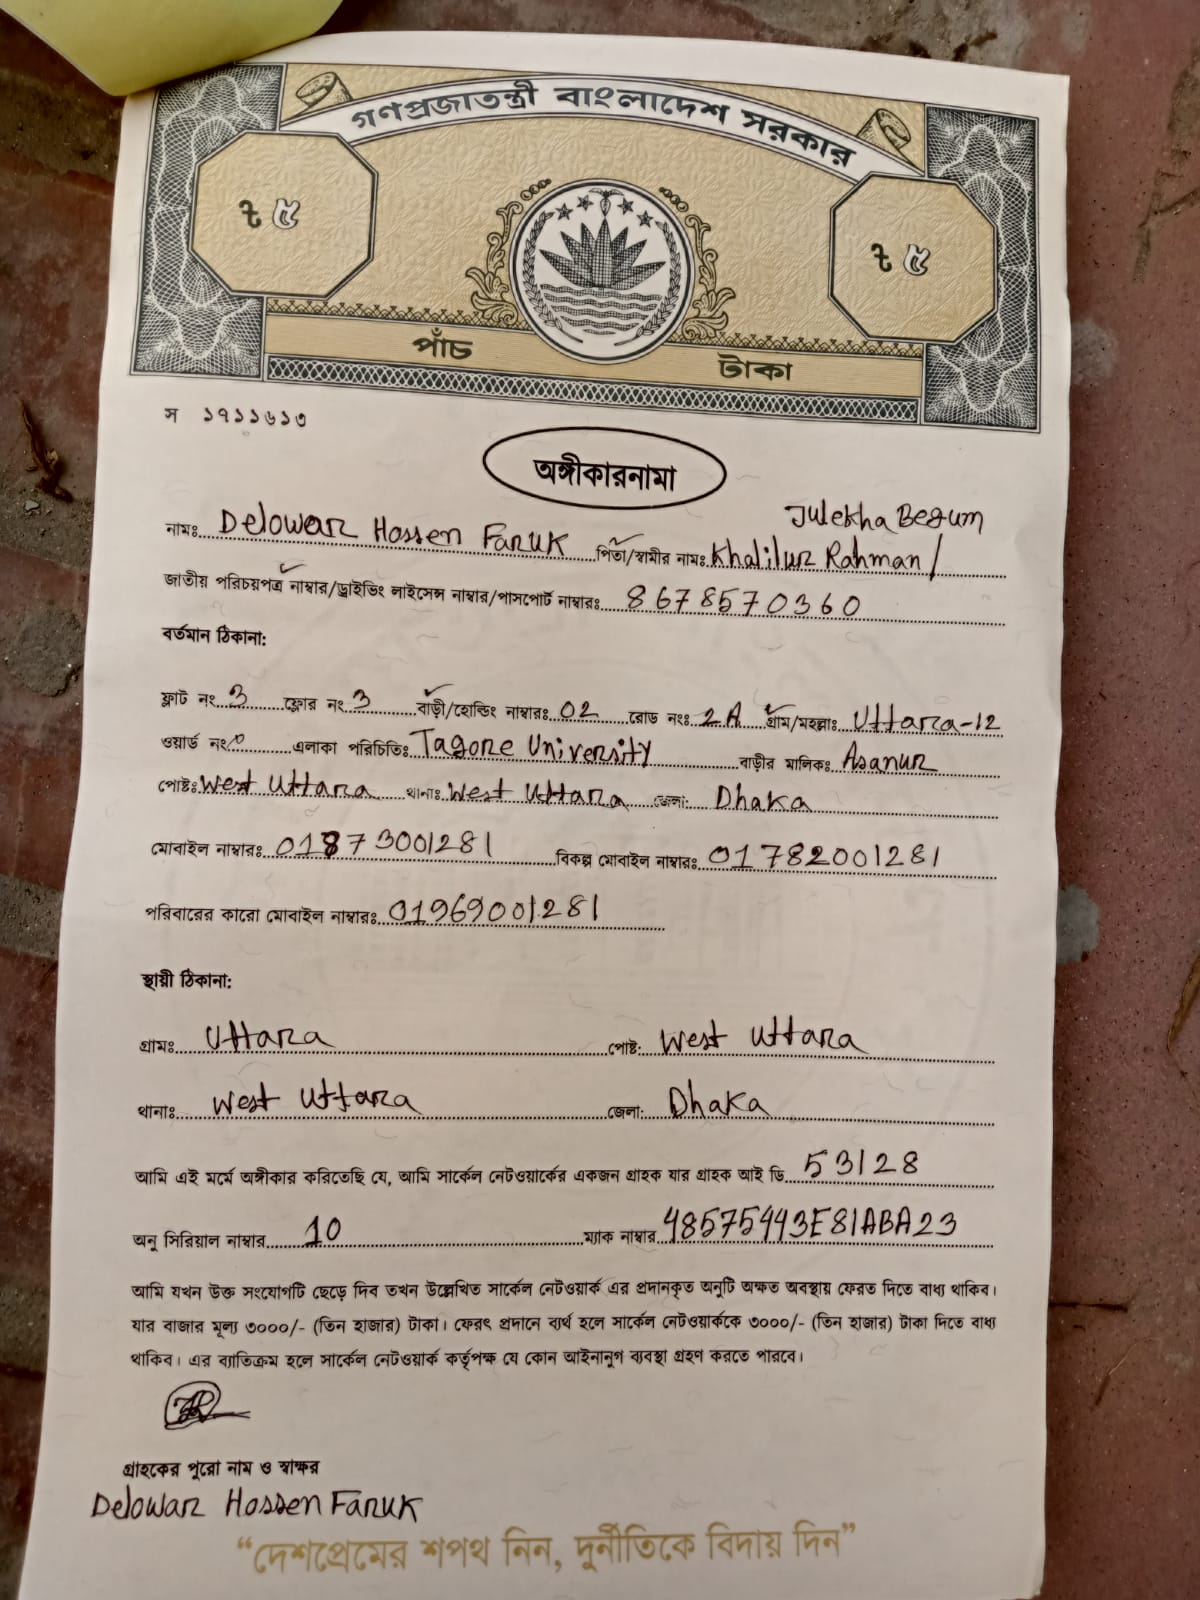 গণপ্রজাতন্ত্রী বাংলাদেশ সরকার
৳ ৫
৳ ৫
পাঁচ টাকা
স ১৭১১৬১৩
অঙ্গীকারনামা
Julekha Begum
নামঃ Delowar Hossen Faruk পিতা/স্বামীর নামঃ Khalilur Rahman /
জাতীয় পরিচয়পত্র নাম্বার/ড্রাইভিং লাইসেন্স নাম্বার/পাসপোর্ট নাম্বারঃ 8678570360
বর্তমান ঠিকানা:
ফ্লাট নং 3 ফ্লোর নং 3 বাড়ী/হোল্ডিং নাম্বারঃ 02 রোড নংঃ 2A গ্রাম/মহল্লাঃ Uttara-12
ওয়ার্ড নং 0 এলাকা পরিচিতিঃ Tagore University বাড়ীর মালিকঃ Asanur
পোষ্টঃ West Uttara থানাঃ West Uttara জেলা: Dhaka
মোবাইল নাম্বারঃ 01873001281 বিকল্প মোবাইল নাম্বারঃ 01782001281
পরিবারের কারো মোবাইল নাম্বারঃ 01969001281
স্থায়ী ঠিকানা:
গ্রামঃ Uttara পোষ্ট: West Uttara
থানাঃ West Uttara জেলা: Dhaka
আমি এই মর্মে অঙ্গীকার করিতেছি যে, আমি সার্কেল নেটওয়ার্কের একজন গ্রাহক যার গ্রাহক আই ডি 53128
অনু সিরিয়াল নাম্বার 10 ম্যাক নাম্বার 48575443E81ABA23
আমি যখন উক্ত সংযোগটি ছেড়ে দিব তখন উল্লেখিত সার্কেল নেটওয়ার্ক এর প্রদানকৃত অনুটি অক্ষত অবস্থায় ফেরত দিতে বাধ্য থাকিব।
যার বাজার মূল্য ৩০০০/- (তিন হাজার) টাকা। ফেরৎ প্রদানে ব্যর্থ হলে সার্কেল নেটওয়ার্ককে ৩০০০/- (তিন হাজার) টাকা দিতে বাধ্য
থাকিব। এর ব্যতিক্রম হলে সার্কেল নেটওয়ার্ক কর্তৃপক্ষ যে কোন আইনানুগ ব্যবস্থা গ্রহণ করতে পারবে।
গ্রাহকের পুরো নাম ও স্বাক্ষর
Delowar Hossen Faruk
“দেশপ্রেমের শপথ নিন, দুর্নীতিকে বিদায় দিন”